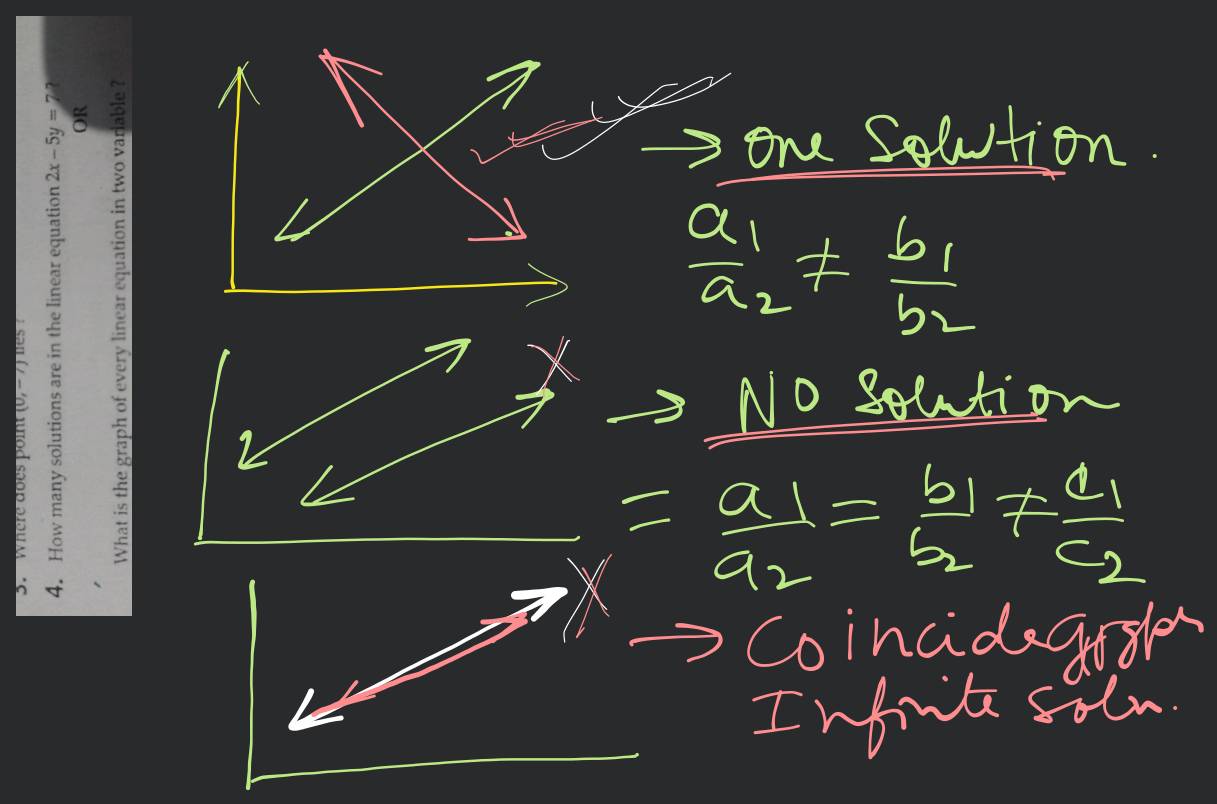 3. Where does point (0, – 7) lies ?
4. How many solutions are in the linear equation 2x – 5y = 7 ?
OR
What is the graph of every linear equation in two variable ?
→ One Solution.
a1/a2 ≠ b1/b2
→ NO Solution
= a1/a2 = b1/b2 ≠ c1/c2
→ Coincide
Infinite soln.